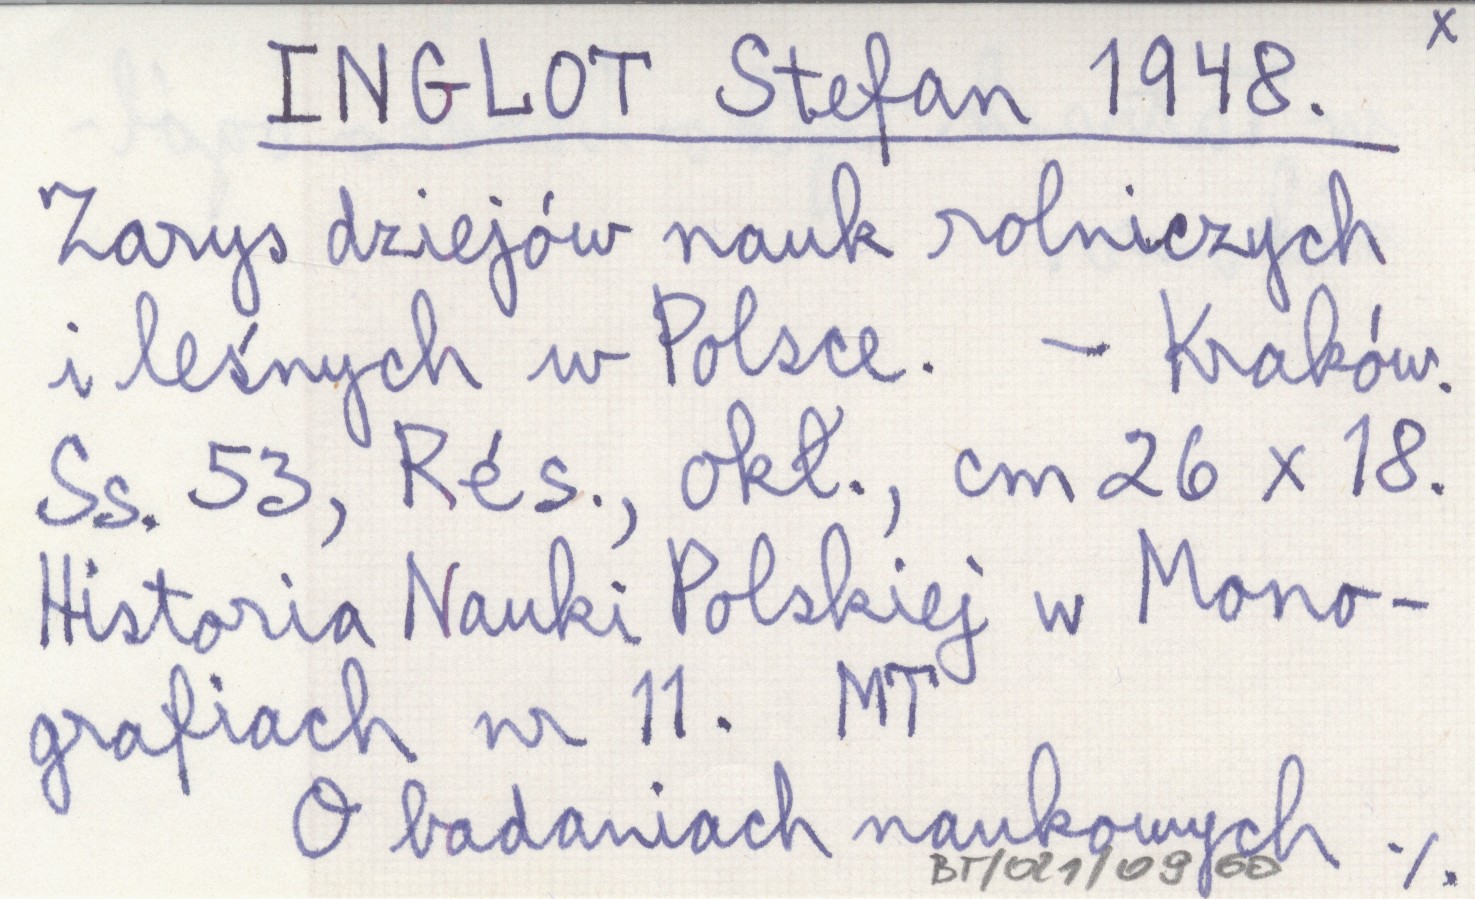 x
INGLOT Stefan 1948.
Zarys dziejów nauk rolniczych
i leśnych w Polsce. - Kraków.
Ss. 53, Rés., okł., cm 26 x 18.
Historia Nauki Polskiej w Mono-
grafiach nr 11. MT
O badaniach naukowych ./.